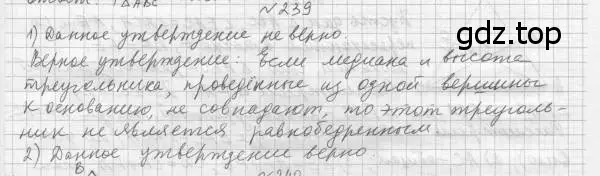 Ответ: 1) △ABC
№239
1) Данное утверждение не верно.
Верное утверждение: Если медиана и высота
треугольника, проведённые из одной вершины
к основанию, не совпадают, то этот треуголь-
ник не является равнобедренным.
2) Данное утверждение верно.
B
№240
gdz.top